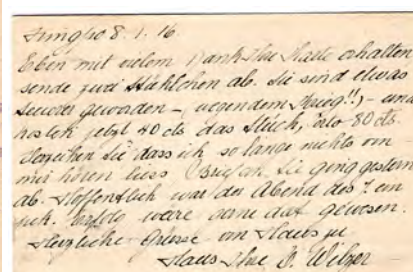 8. 1. 16.
Eben mit vielem Dank Ihre Karte erhalten
sende zwei ab. Sie sind etwas
teurer geworden – wegen dem Krieg!! – und
kosten jetzt 40 cts das Stück, also 80 cts.
Verzeihen Sie dass ich so lange nichts von
mir hören liess. Sie ging gestern
ab. Hoffentlich war der Abend des 7. ein
wäre gerne auf gewesen.
Herzliche Grüsse von Haus zu
Haus Ihre